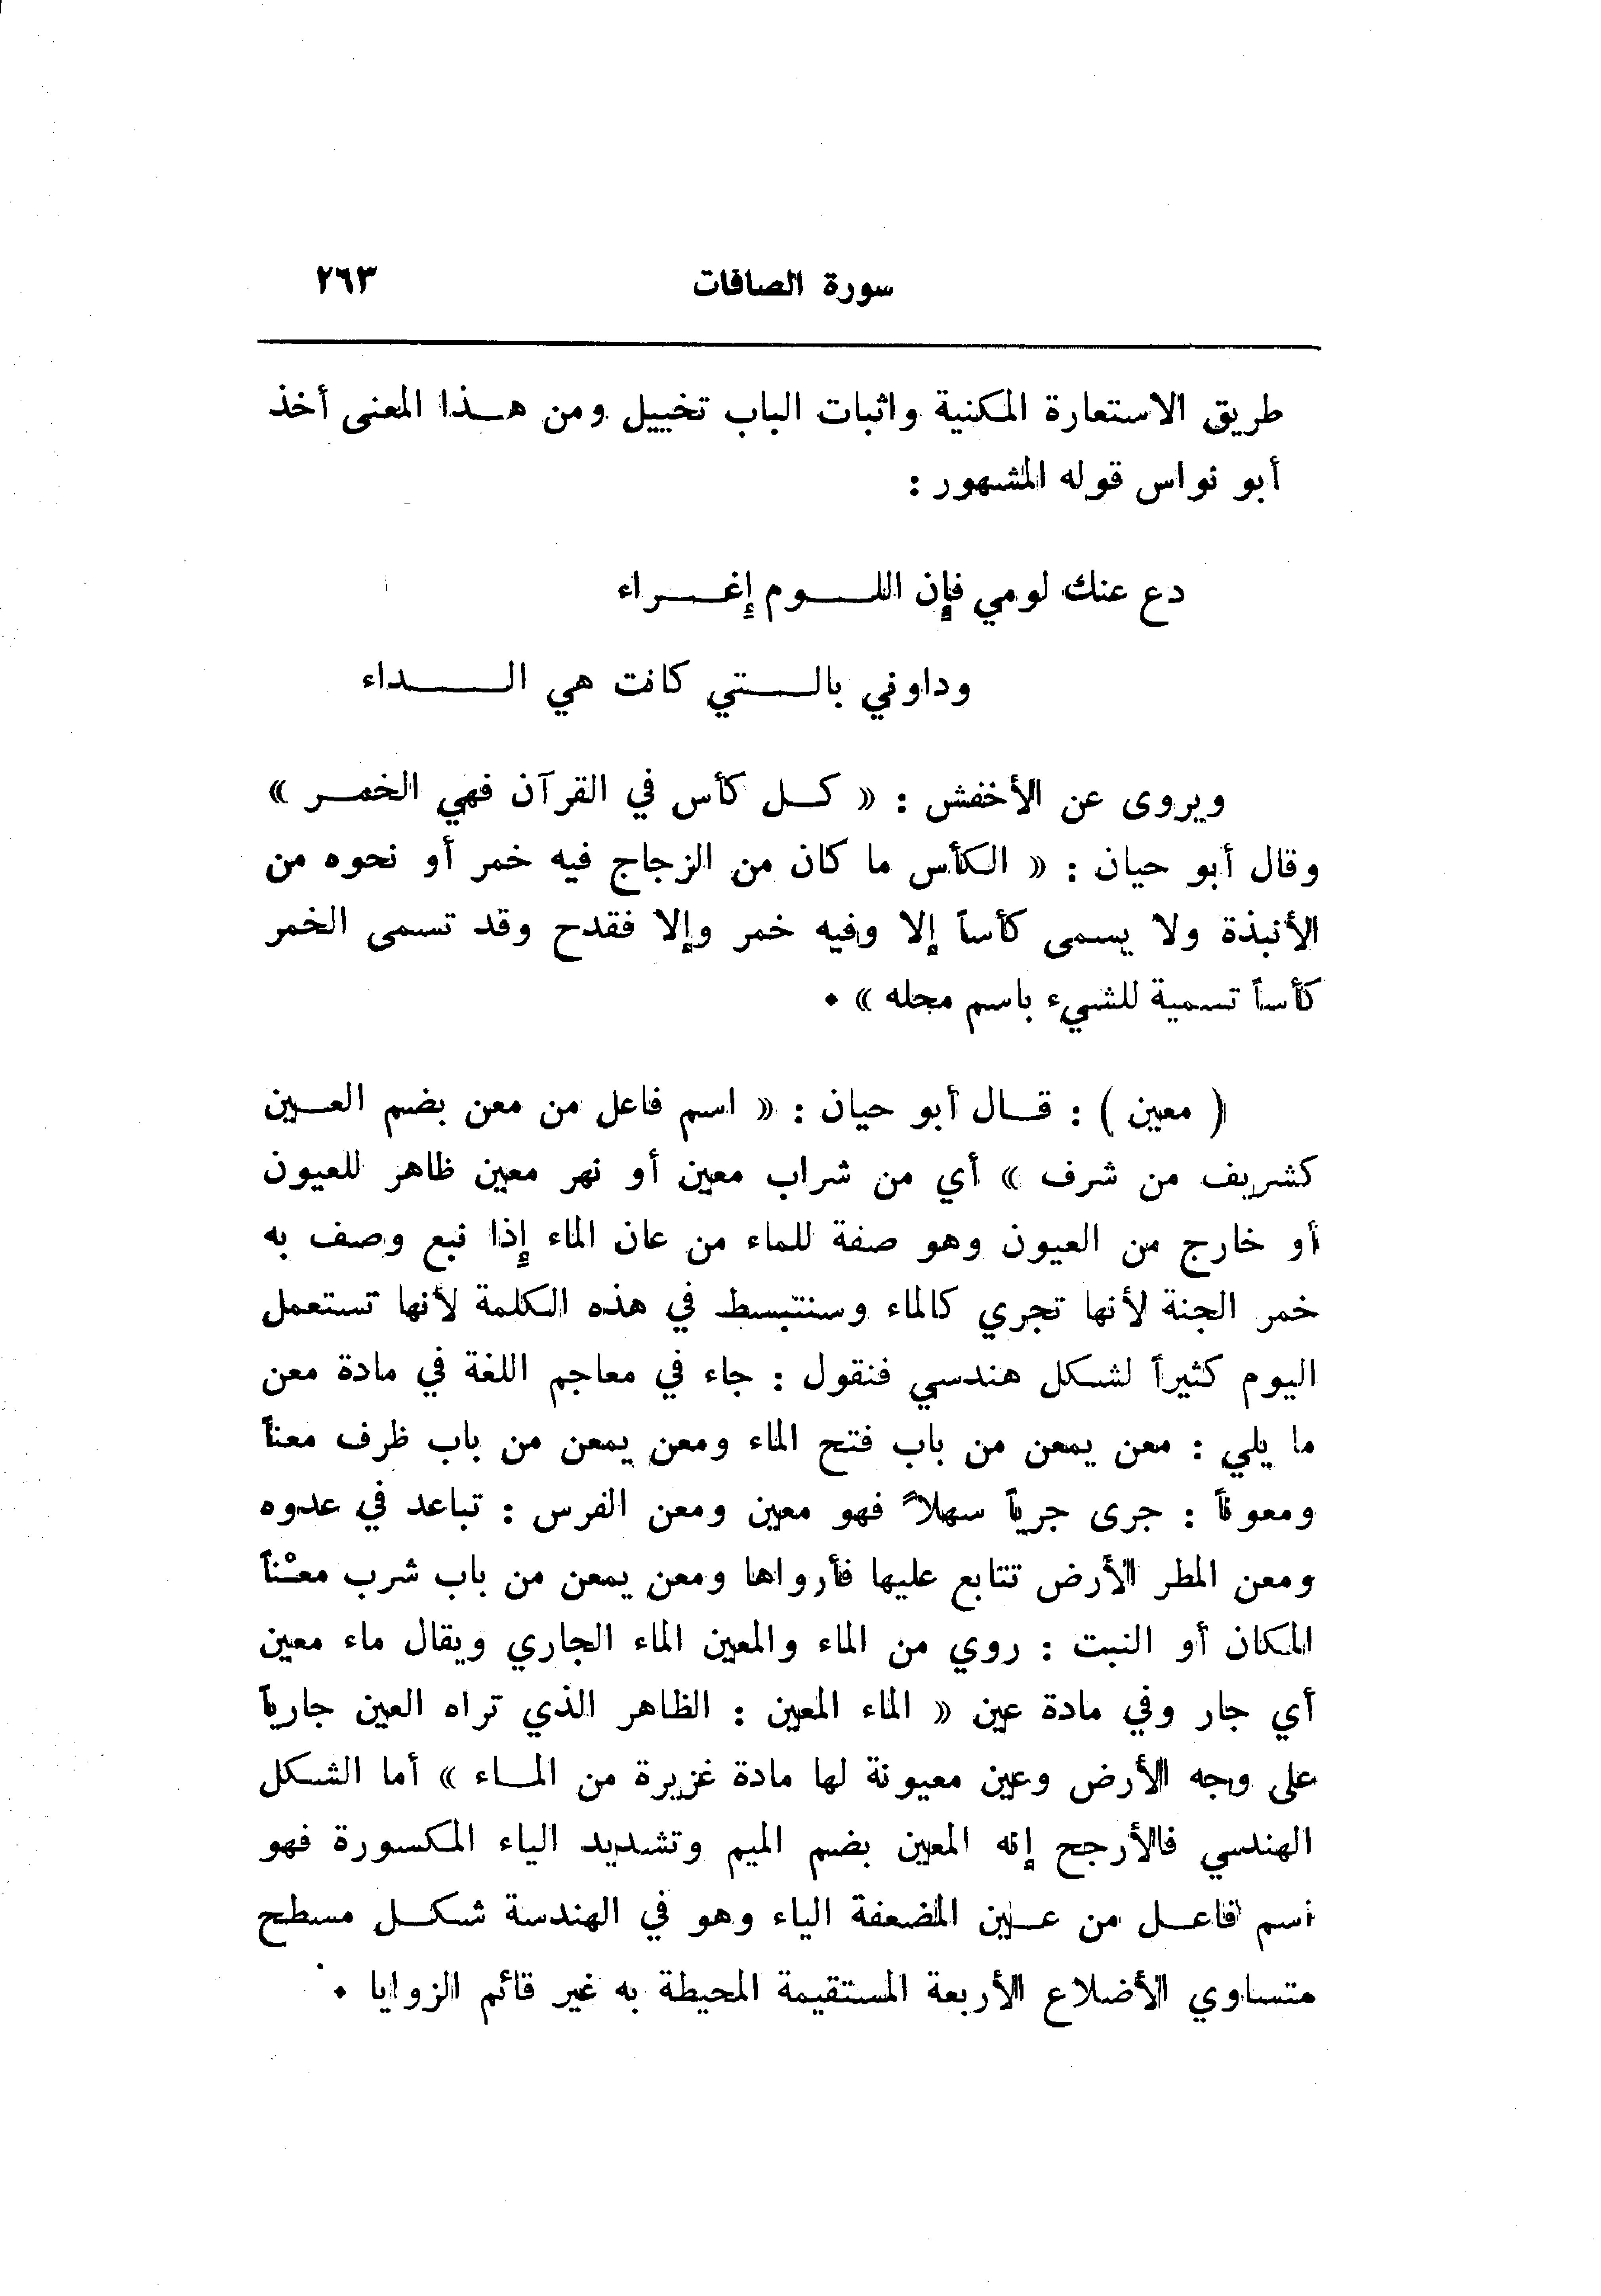 سورة الصافات ٢٦٣
طريق الاستعارة المكنية واثبات الباب تخييل ومن هذا المعنى أخذ
أبو نواس قوله المشهور :
دع عنك لومي فإن اللوم إغراء
وداوني بالتي كانت هي الداء
ويروى عن الأخفش : « كل كأس في القرآن فهي الخمر »
وقال أبو حيان : « الكأس ما كان من الزجاج فيه خمر أو نحوه من
الأنبذة ولا يسمى كأساً إلا وفيه خمر وإلا فقدح وقد تسمى الخمر
كأساً تسمية للشيء باسم محله » .
( معين ) : قال أبو حيان : « اسم فاعل من معن بضم العين
كشريف من شرف » أي من شراب معين أو نهر معين ظاهر للعيون
أو خارج من العيون وهو صفة للماء من عان الماء إذا نبع وصف به
خمر الجنة لأنها تجري كالماء وسنتبسط في هذه الكلمة لأنها تستعمل
اليوم كثيراً لشكل هندسي فنقول : جاء في معاجم اللغة في مادة معن
ما يلي : معن يمعن من باب فتح الماء ومعن يمعن من باب ظرف معناً
ومعوناً : جرى جرياً سهلاً فهو معين ومعن الفرس : تباعد في عدوه
ومعن المطر الأرض تتابع عليها فأرواها ومعن يمعن من باب شرب معْناً
المكان أو النبت : روي من الماء والمعين الماء الجاري ويقال ماء معين
أي جار وفي مادة عين « الماء المعين : الظاهر الذي تراه العين جارياً
على وجه الأرض وعين معيونة لها مادة غزيرة من الماء » أما الشكل
الهندسي فالأرجح إنه المعين بضم الميم وتشديد الياء المكسورة فهو
اسم فاعل من عين المضعفة الياء وهو في الهندسة شكل مسطح
متساوي الأضلاع الأربعة المستقيمة المحيطة به غير قائم الزوايا .